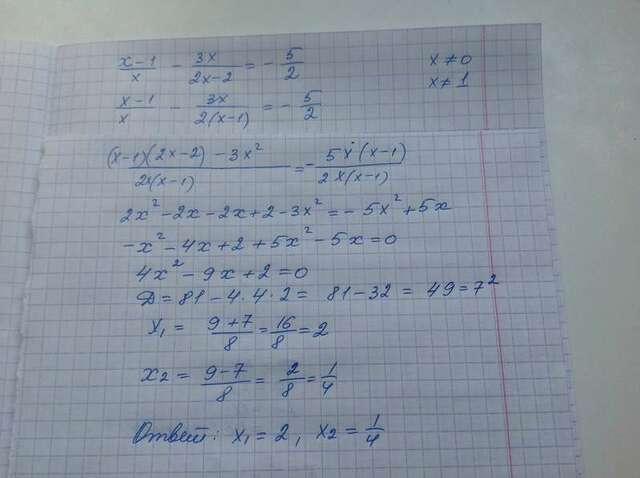 (x-1)/x - 3x/(2x-2) = -5/2 x≠0
(x-1)/x - 3x/(2(x-1)) = -5/2 x≠1
((x-1)(2x-2)-3x²)/(2x(x-1)) = -5x(x-1)/(2x(x-1))
2x²-2x-2x+2-3x²=-5x²+5x
-x²-4x+2+5x²-5x=0
4x²-9x+2=0
Д=81-4·4·2= 81-32 = 49=7²
x₁= (9+7)/8=16/8=2
x₂= (9-7)/8= 2/8=1/4
Ответ: x₁=2, x₂=1/4